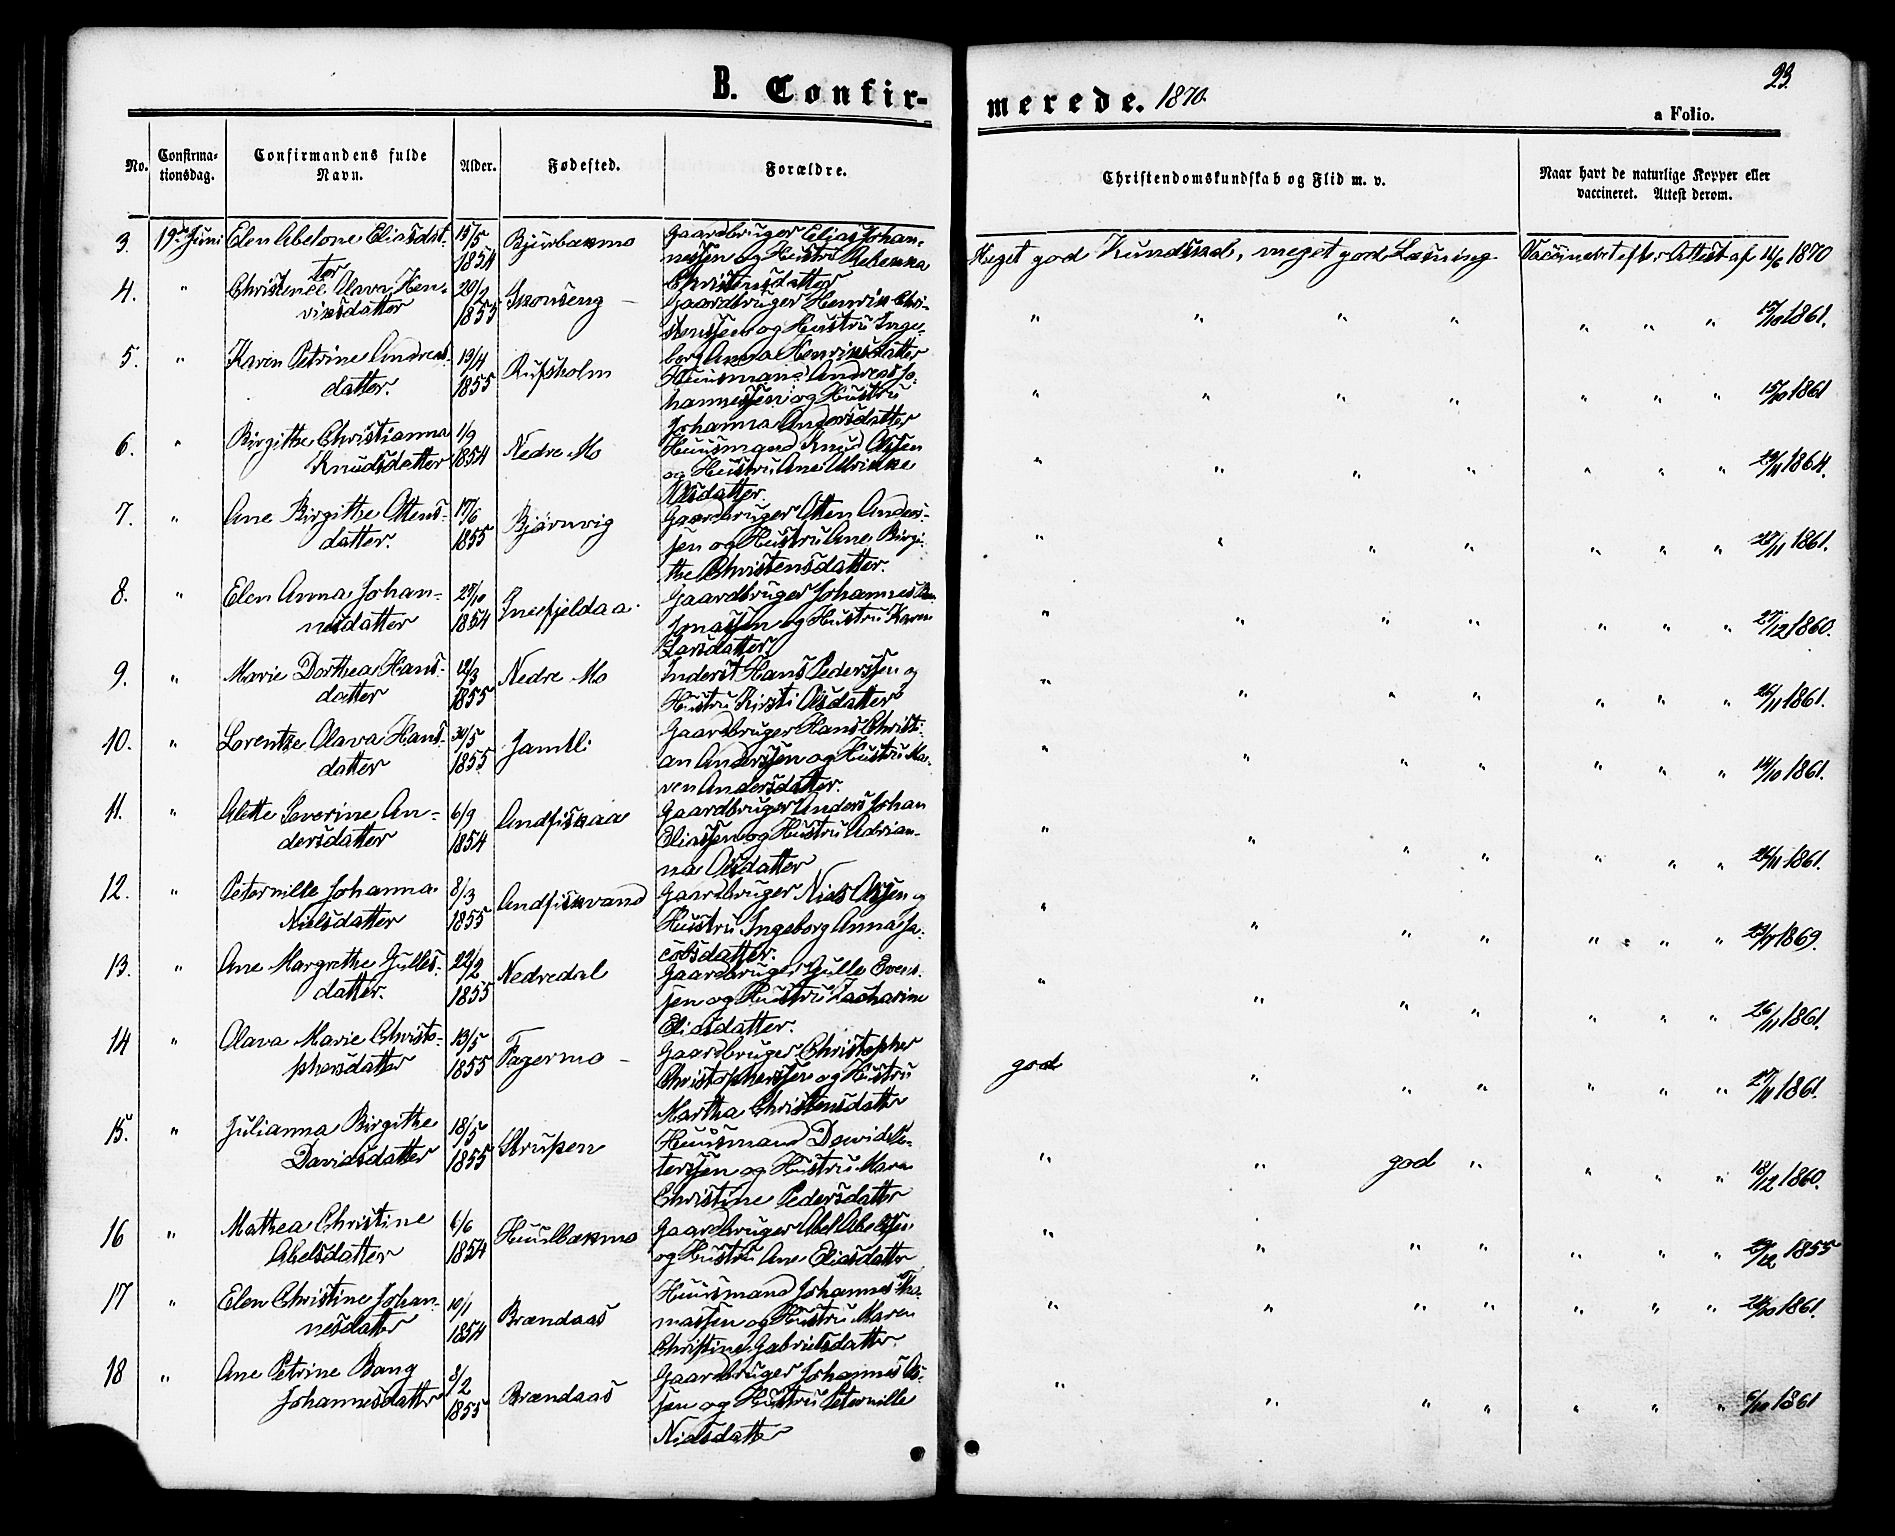 B. Confir-
merede. 1870.
23.
a Folio.
No.
Confirma-
tionsdag.
Confirmandens fulde
Navn.
Alder.
Fødested.
Forældre.
Christendomskundskab og Flid m. v.
Naar havt de naturlige Kopper eller
vaccineret. Attest derom.
3. 19de Juni Elen Abelone Eliasdat-
ter
15/5
1854
Bjurbækmo
Gaardbruger Elias Johan-
nessen og Hustru Rebekka
Christensdatter
Meget god Kundskab, meget god Læsning.
Vaccineret efter Attest af 14/6 1870
4. " Christence Olava Hen-
riksdatter
20/9
1855
Skonseng -
Gaardbruger Henrik Chri-
stenssen og Hustru Inge-
borg Anna Henriksdatter
" " " "
" " " 15/10 1861.
5. " Karen Petrine Andreas-
datter.
13/4
1855
Rufsholm
Huusmand Andreas Jo-
hannessen og Hustru
Johanna Andersdatter
" " " "
" " " 15/10 1861
6. " Birgithe Christianna
Knudsdatter
1/9
1854
Nedre Mo
Huusmand Knud Olssen
og Hustru Ane Ulrikke
Nilsdatter.
" " " "
" " " 29/11 1864.
7. " Ane Birgithe Ottens-
datter.
17/6
1855
Bjørnvig
Gaardbruger Otten Anders-
sen og Hustru Ane Birgi-
the Christensdatter.
" " " "
" " " 27/11 1861.
8. " Elen Anna Johan-
nesdatter
27/10
1854
Snefjeldaa
Gaardbruger Johannes
Jonassen og Hustru Karen
Larsdatter
" " " "
" " " 27/12 1860.
9. " Marie Dorthea Hans-
datter
12/3
1855
Nedre Mo
Inderst Hans Pederssen og
Hustru Kirsti Olsdatter
" " " "
" " " 26/11 1861.
10. " Lorentze Olava Hans-
datter
30/5
1855
Jamtli
Gaardbruger Hans Christi-
an Anderssen og Hustru Ma-
ren Andersdatter.
" " " "
" " " 14/10 1861.
11. " Alette Severine An-
dersdatter
6/9
1854
Andfiskaa
Gaardbruger Anders Johan
Eliassen og Hustru Adrian-
na Olsdatter
" " " "
" " " 26/11 1861.
12. " Peternille Johanna
Nielsdatter
8/3
1855
Andfiskvand
Gaardbruger Niels Olssen og
Hustru Ingeborg Anna Ja-
cobsdatter.
" " " "
" " " 1869.
13. " Ane Margrethe Gulles-
datter.
22/2
1855
Nedredal
Gaardbruger Gulle Evens-
sen og Hustru Zacharine
Eliasdatter.
" " " "
" " " 26/11 1861.
14 " Olava Marie Christo-
phersdatter
13/5
1855
Fagermo -
Gaardbruger Christopher
Christopherssen og Hustru
Martha Christensdatter
god " " "
" " " 27/11 1861.
15. " Julianna Birgithe
Davidsdatter
18/5
1855
Strupen
Huusmand David Pe-
terssen og Hustru Maren
Christine Pedersdatter
" " god "
" " " 18/12 1860.
16 " Mathea Christine
Abelsdatter
6/6
1854
Huulbækmo
Gaardbruger Abel Abelssen
og Hustru Ane Eliasdatter
" " " "
" " " 29/12 1855
17 " Elen Christine Johan-
nesdatter
10/1
1854
Brændaas
Huusmand Johannes Tho-
massen og Hustru Maren
Christine Gabrielsdatter.
" " " "
" " " 24/10 1861.
18 " Ane Petrine Bang
Johannesdatter
8/2
1855
Brændaas
Gaardbruger Johannes Ols-
sen og Hustru Peternille
Nielsdatter
" " " "
" " " 5/10 1861